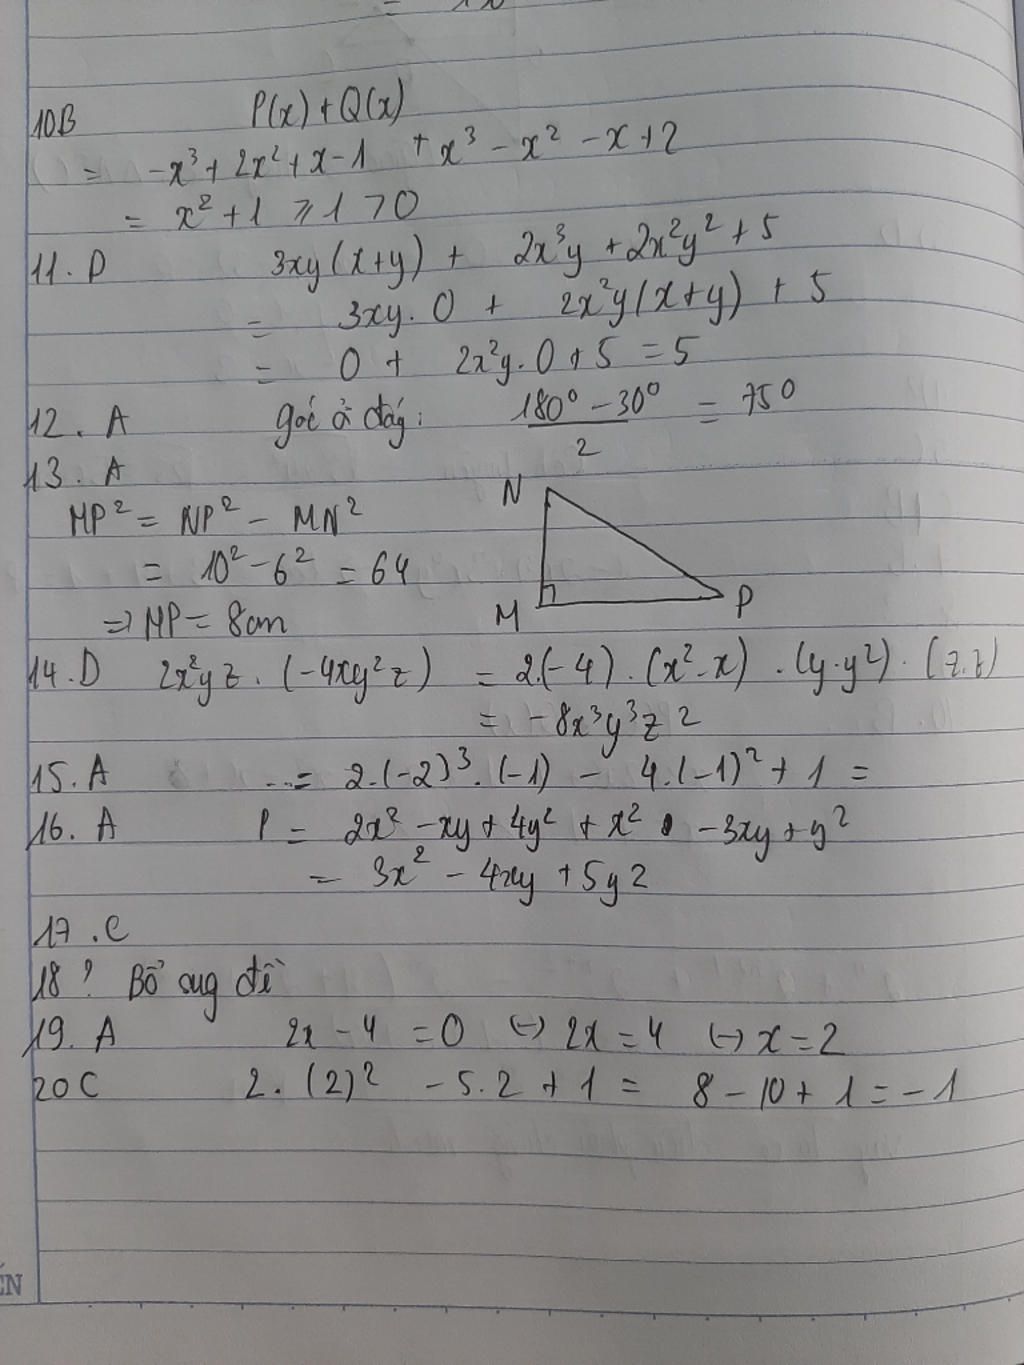 10B P(x) + Q(x)
= -x³ + 2x² + x - 1 + x³ - x² - x + 2
= x² + 1 ⩾ 1 > 0
11. D 3xy(x+y) + 2x³y + 2x²y² + 5
= 3xy. 0 + 2x²y(x+y) + 5
= 0 + 2x²y. 0 + 5 = 5
12. A góc ở đáy: (180° - 30°)/2 = 75°
13. A
MP² = NP² - MN²
= 10² - 6² = 64
⇒ MP = 8cm
N
M
P
14. D 2x²yz. (-4xy²z) = 2.(-4). (x².x) . (y.y²). (z.z)
= -8x³y³z²
15. A ...= 2.(-2)³.(-1) - 4.(-1)² + 1 =
16. A P = 2x² - xy + 4y² + x² - 3xy + y²
= 3x² - 4xy + 5y²
17. C
18? Bổ sug đề
19. A 2x - 4 = 0 (-) 2x = 4 (-) x = 2
20C 2. (2)² - 5.2 + 1 = 8 - 10 + 1 = -1